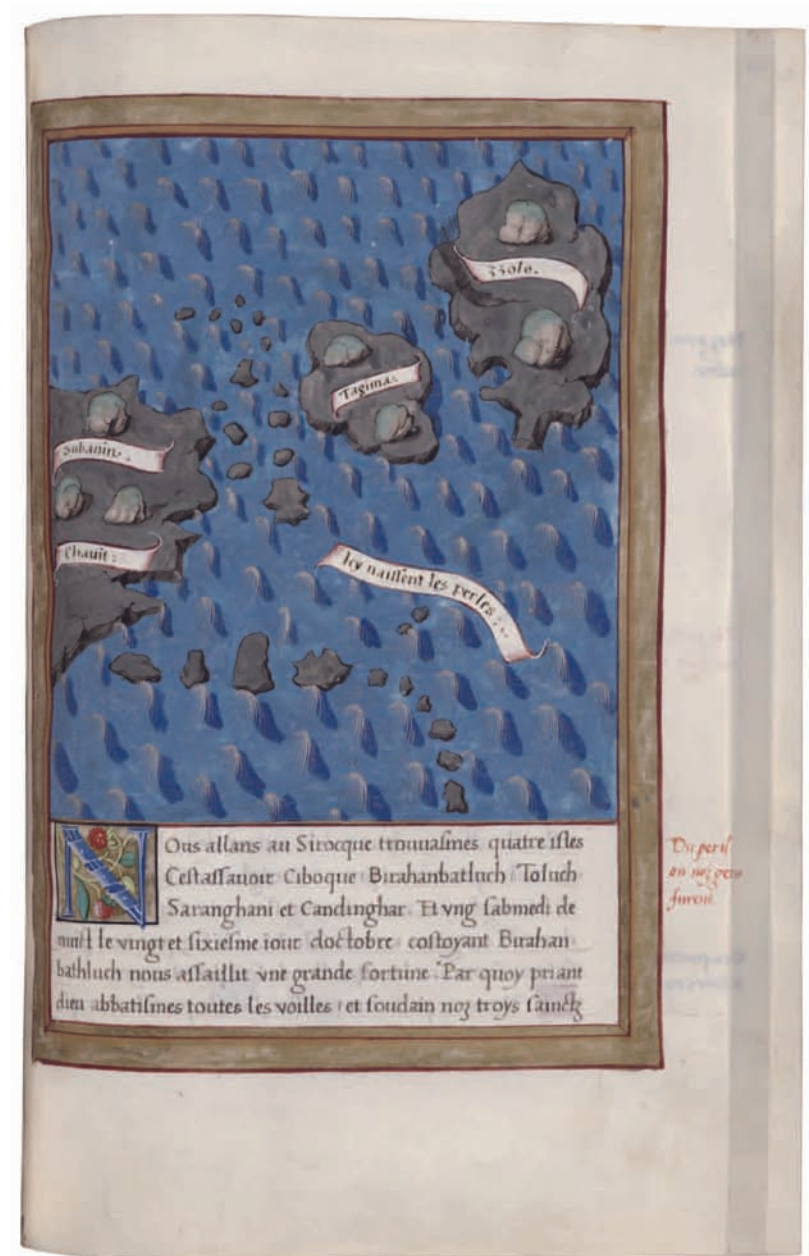 zzolo.
Tagima:
Subanin:
Chauit:
Icy naissent les perles:
NOus allans au Sirocque trouuasmes quatre isles
Cestassauoir Ciboque Birahanbatluch Toluch
Saranghani et Candinghar. Et vng sabmedi de
nuict le vingt et sixiesme iour doctobre costoyant Birahan
bathluch nous assaillit vne grande fortune. Par quoy priant
dieu abbatismes toutes les voilles: et soudain noz troys sainctz
Du peril
ou noz gens
furent